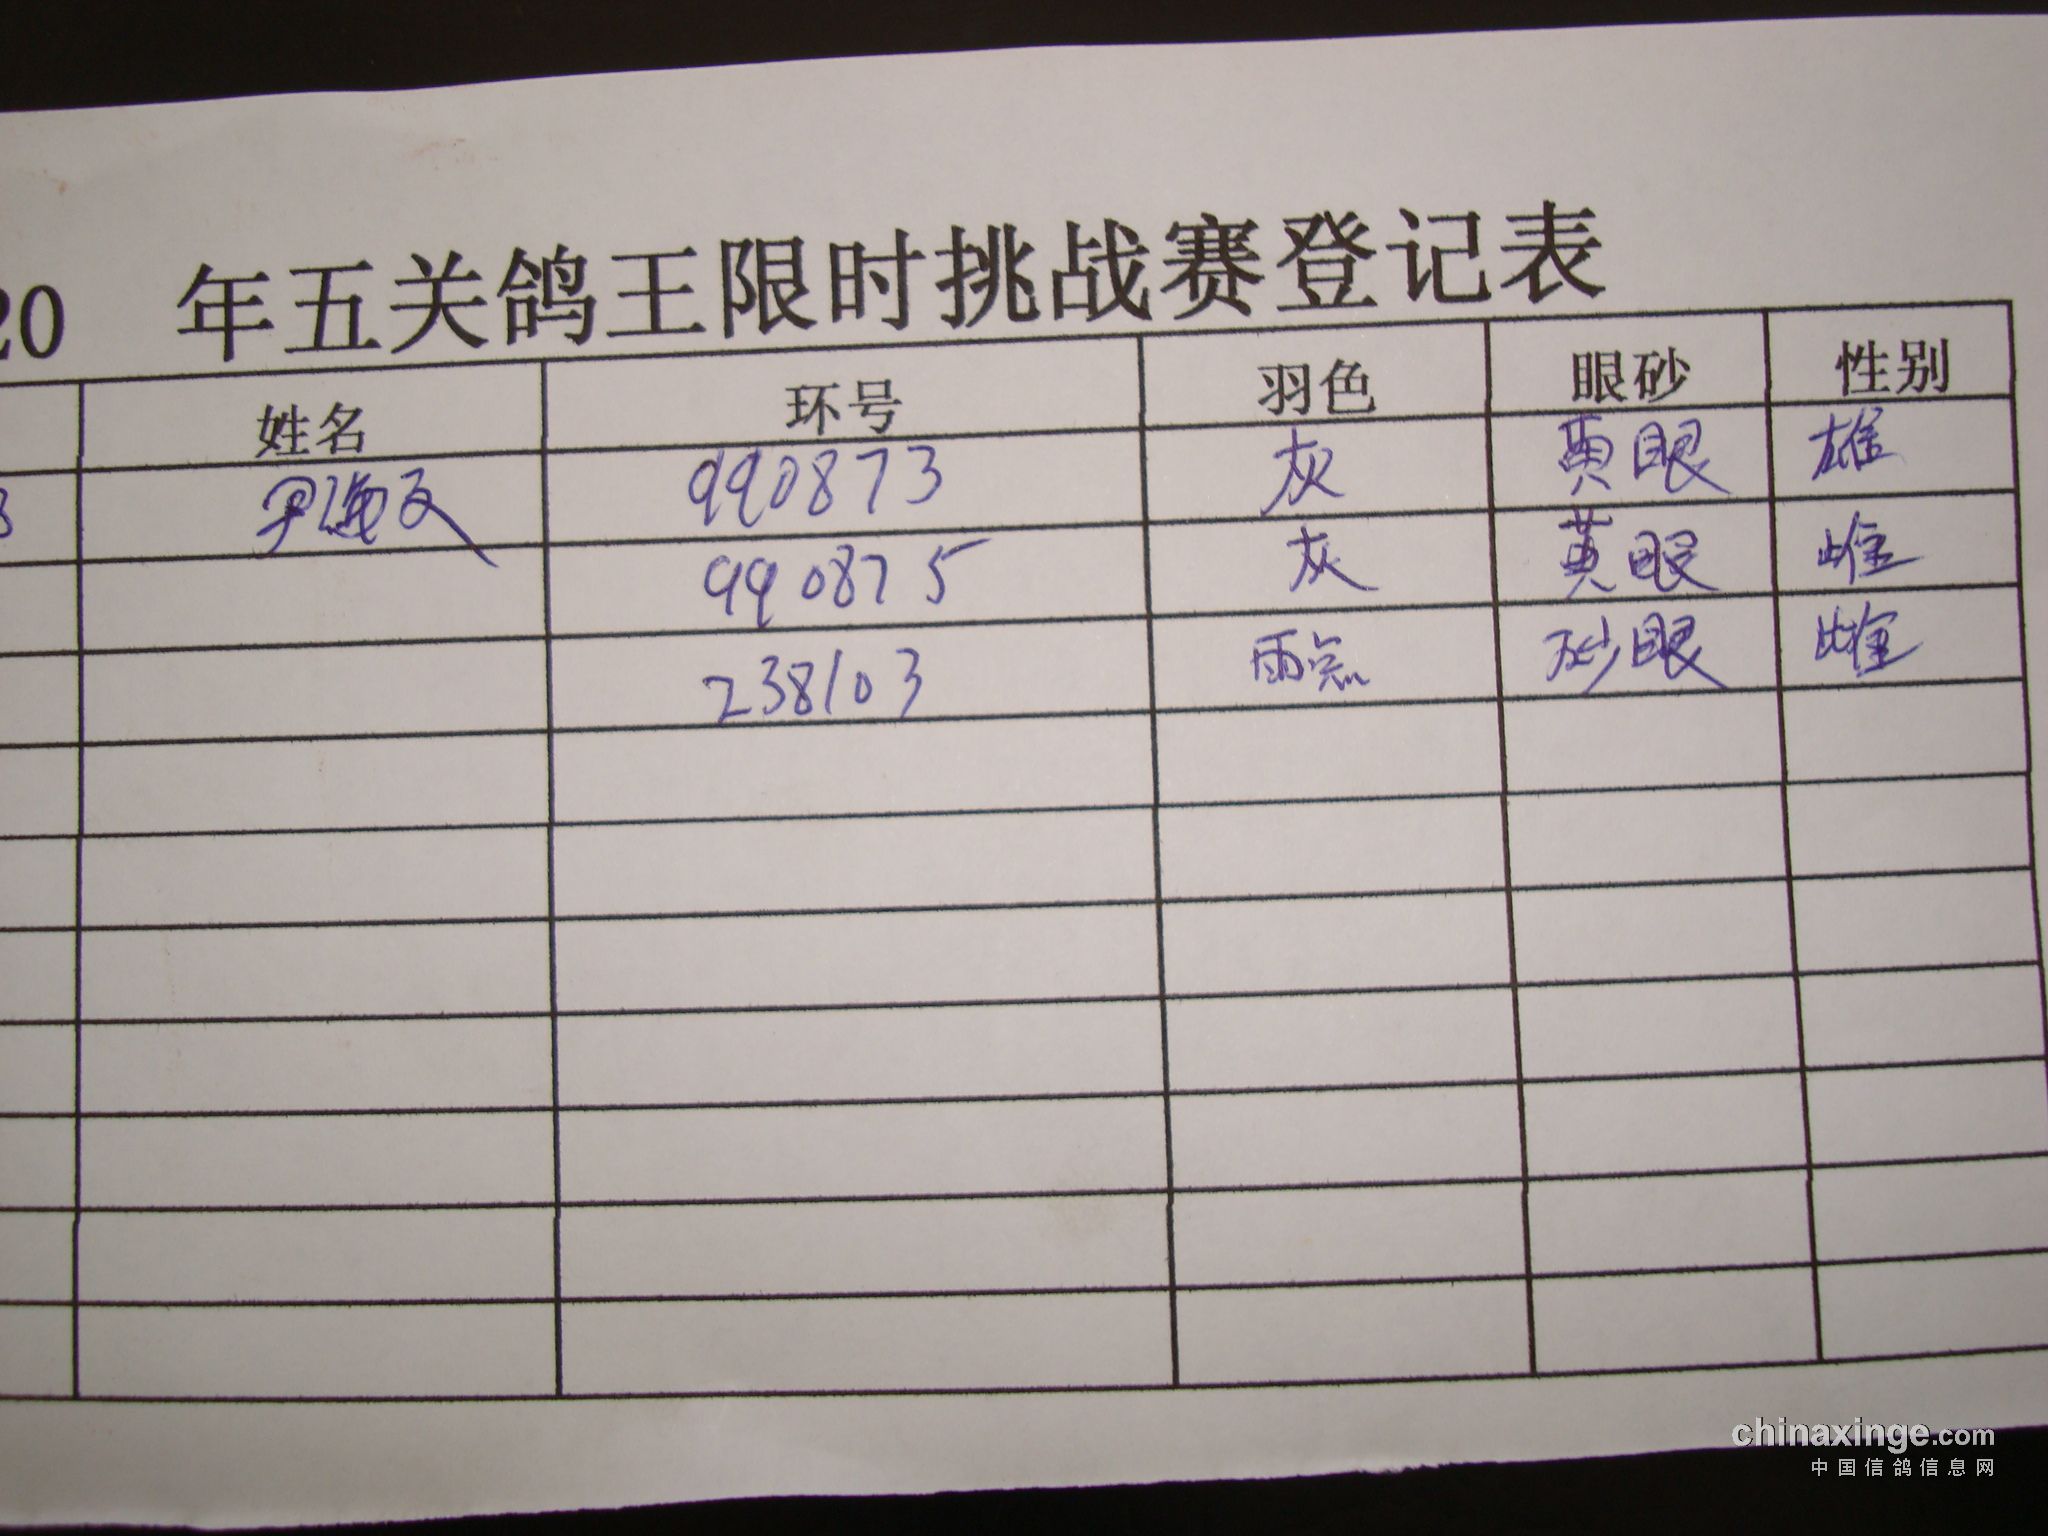 20 年五关鸽王限时挑战赛登记表
姓名 环号 羽色 眼砂 性别
3 尹海文 990873 灰 黄眼 雄
990875 灰 黄眼 雌
238103 雨点 砂眼 雌
chinaxinge.com
中国信鸽信息网